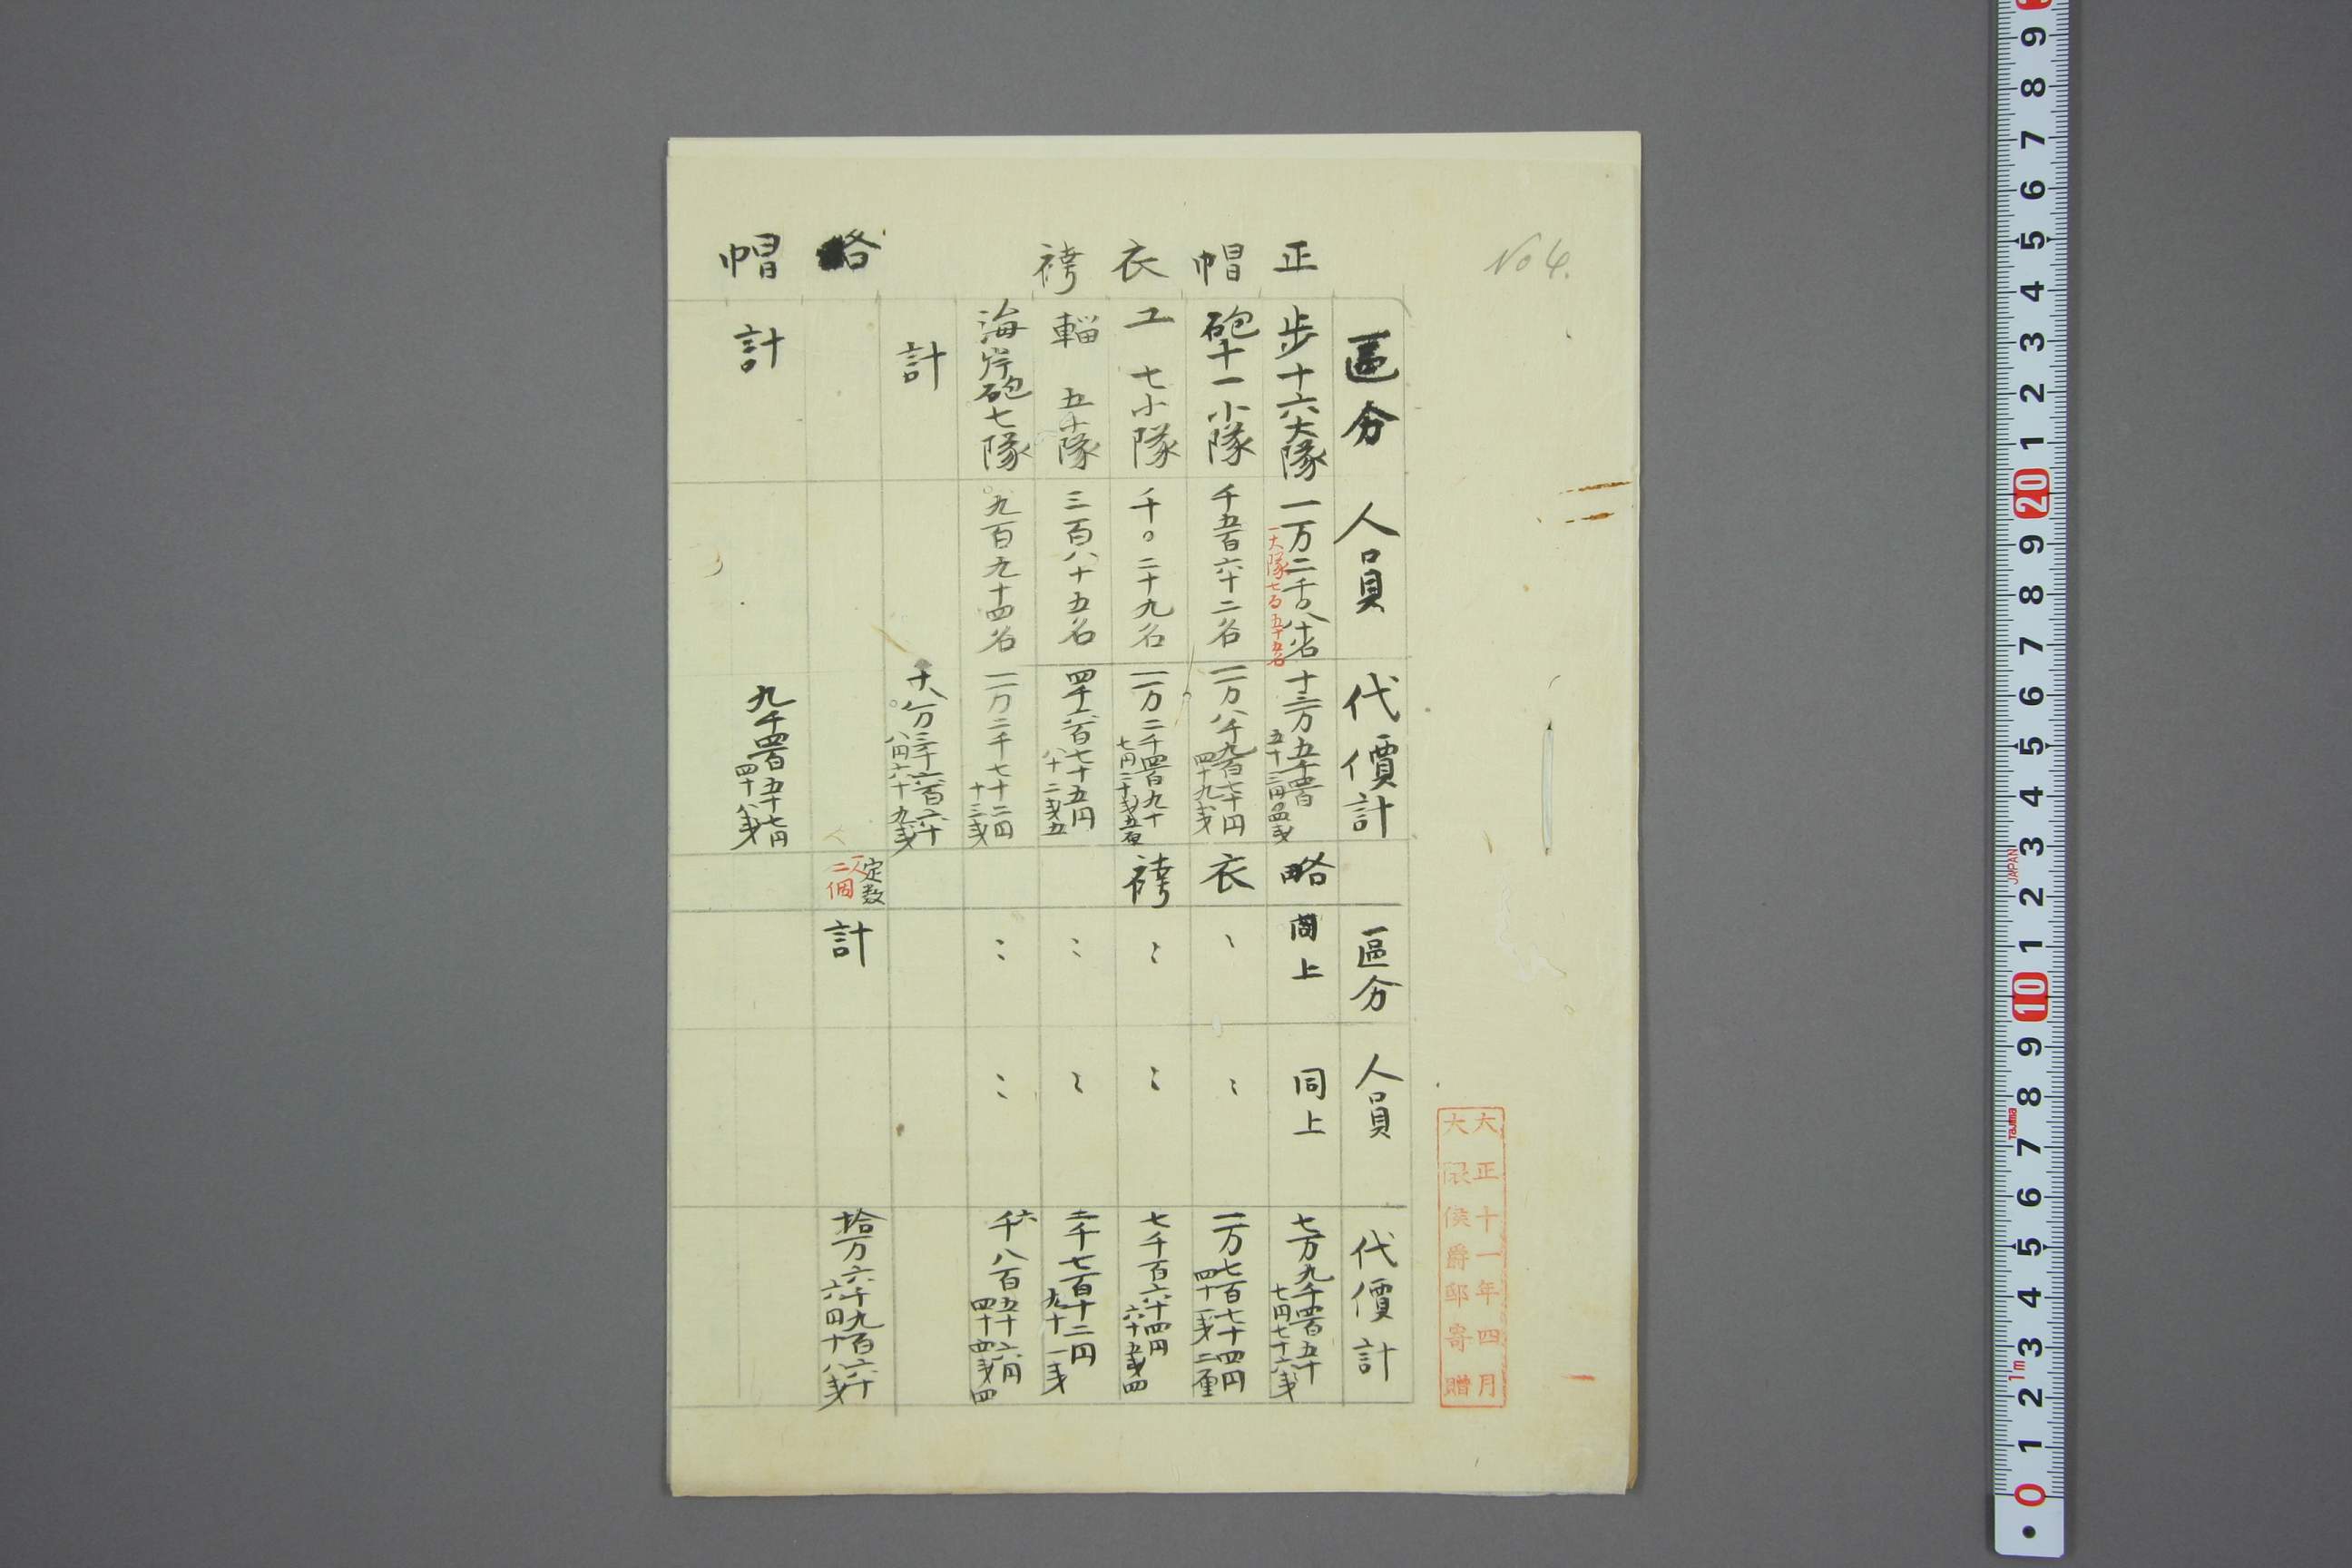 No 4.
正帽衣袴
略帽
區分
人員
代價計
區分
人員
代價計
歩十六大隊
一万二千〇八十名
一大隊七百五十五名
十三万五千四百
五十三円四戔
略衣袴
同上
同上
七万九千四百五十
七円七十六戔
砲十一小隊
千五百六十二名
一万八千九百七十円
四十九戔
〻
〻
一万七百七十四円
四十一戔二重
工 七小隊
千〇二十九名
一万二千四百九十
七円二十戔五厘
〻
〻
七千百六十四円
六十五戔四
輜 五小隊
三百八十五名
四千六百七十五円
八十二戔五
〻
〻
二千七百十二円
九十一戔
海岸砲七隊
九百九十四名
一万二千七十二円
十三戔
〻
〻
六千八百五十六円
四十四戔四
計
十八万三千六百六十
八円六十九戔
定数
一人
二個
計
拾万六千九百六十
六円十八戔
計
九千四百五十七円
四十八戔
大正十一年四月
大隈侯爵邸寄贈